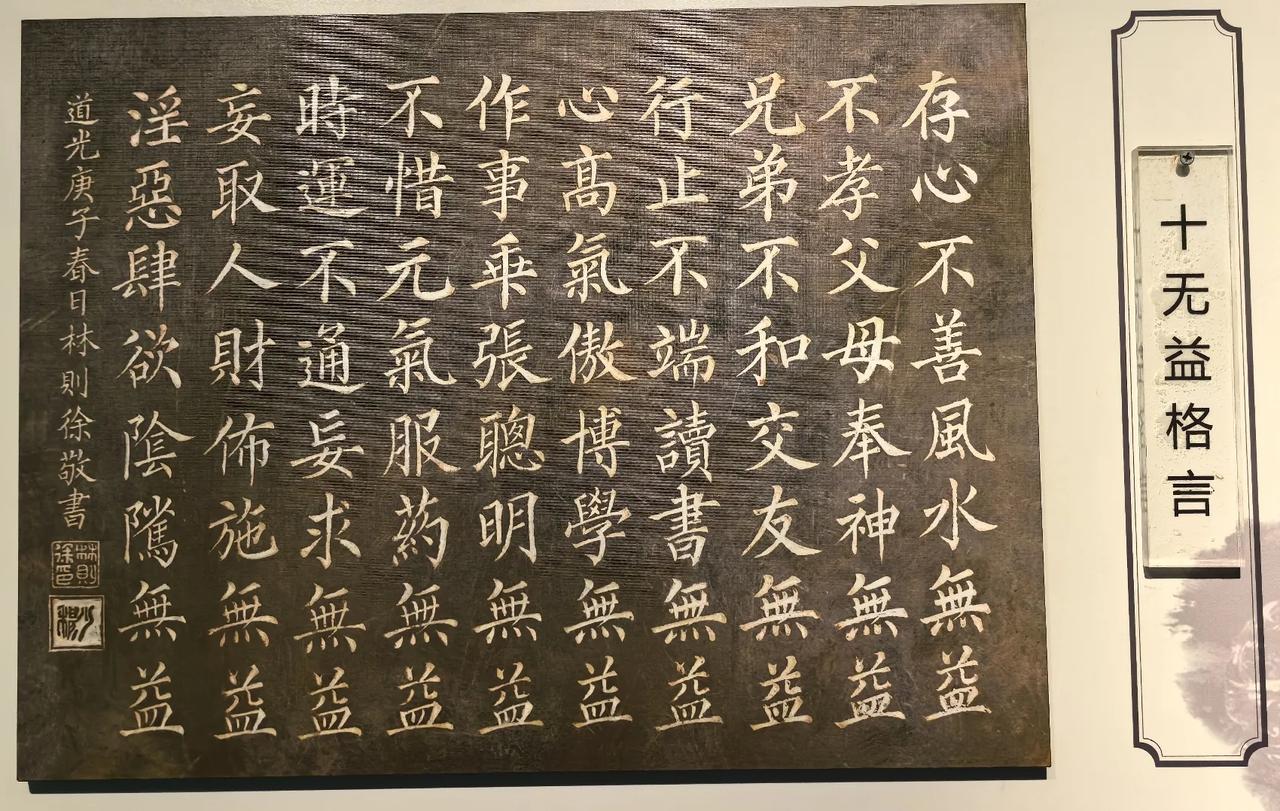 十无益格言
存心不善風水無益
不孝父母奉神無益
兄弟不和交友無益
行止不端讀書無益
心高氣傲博學無益
作事乗張聰明無益
不惜元氣服药無益
時運不通妄求無益
妄取人財佈施無益
淫惡肆欲陰隲無益
道光庚子春日林則徐敬書
林則徐印